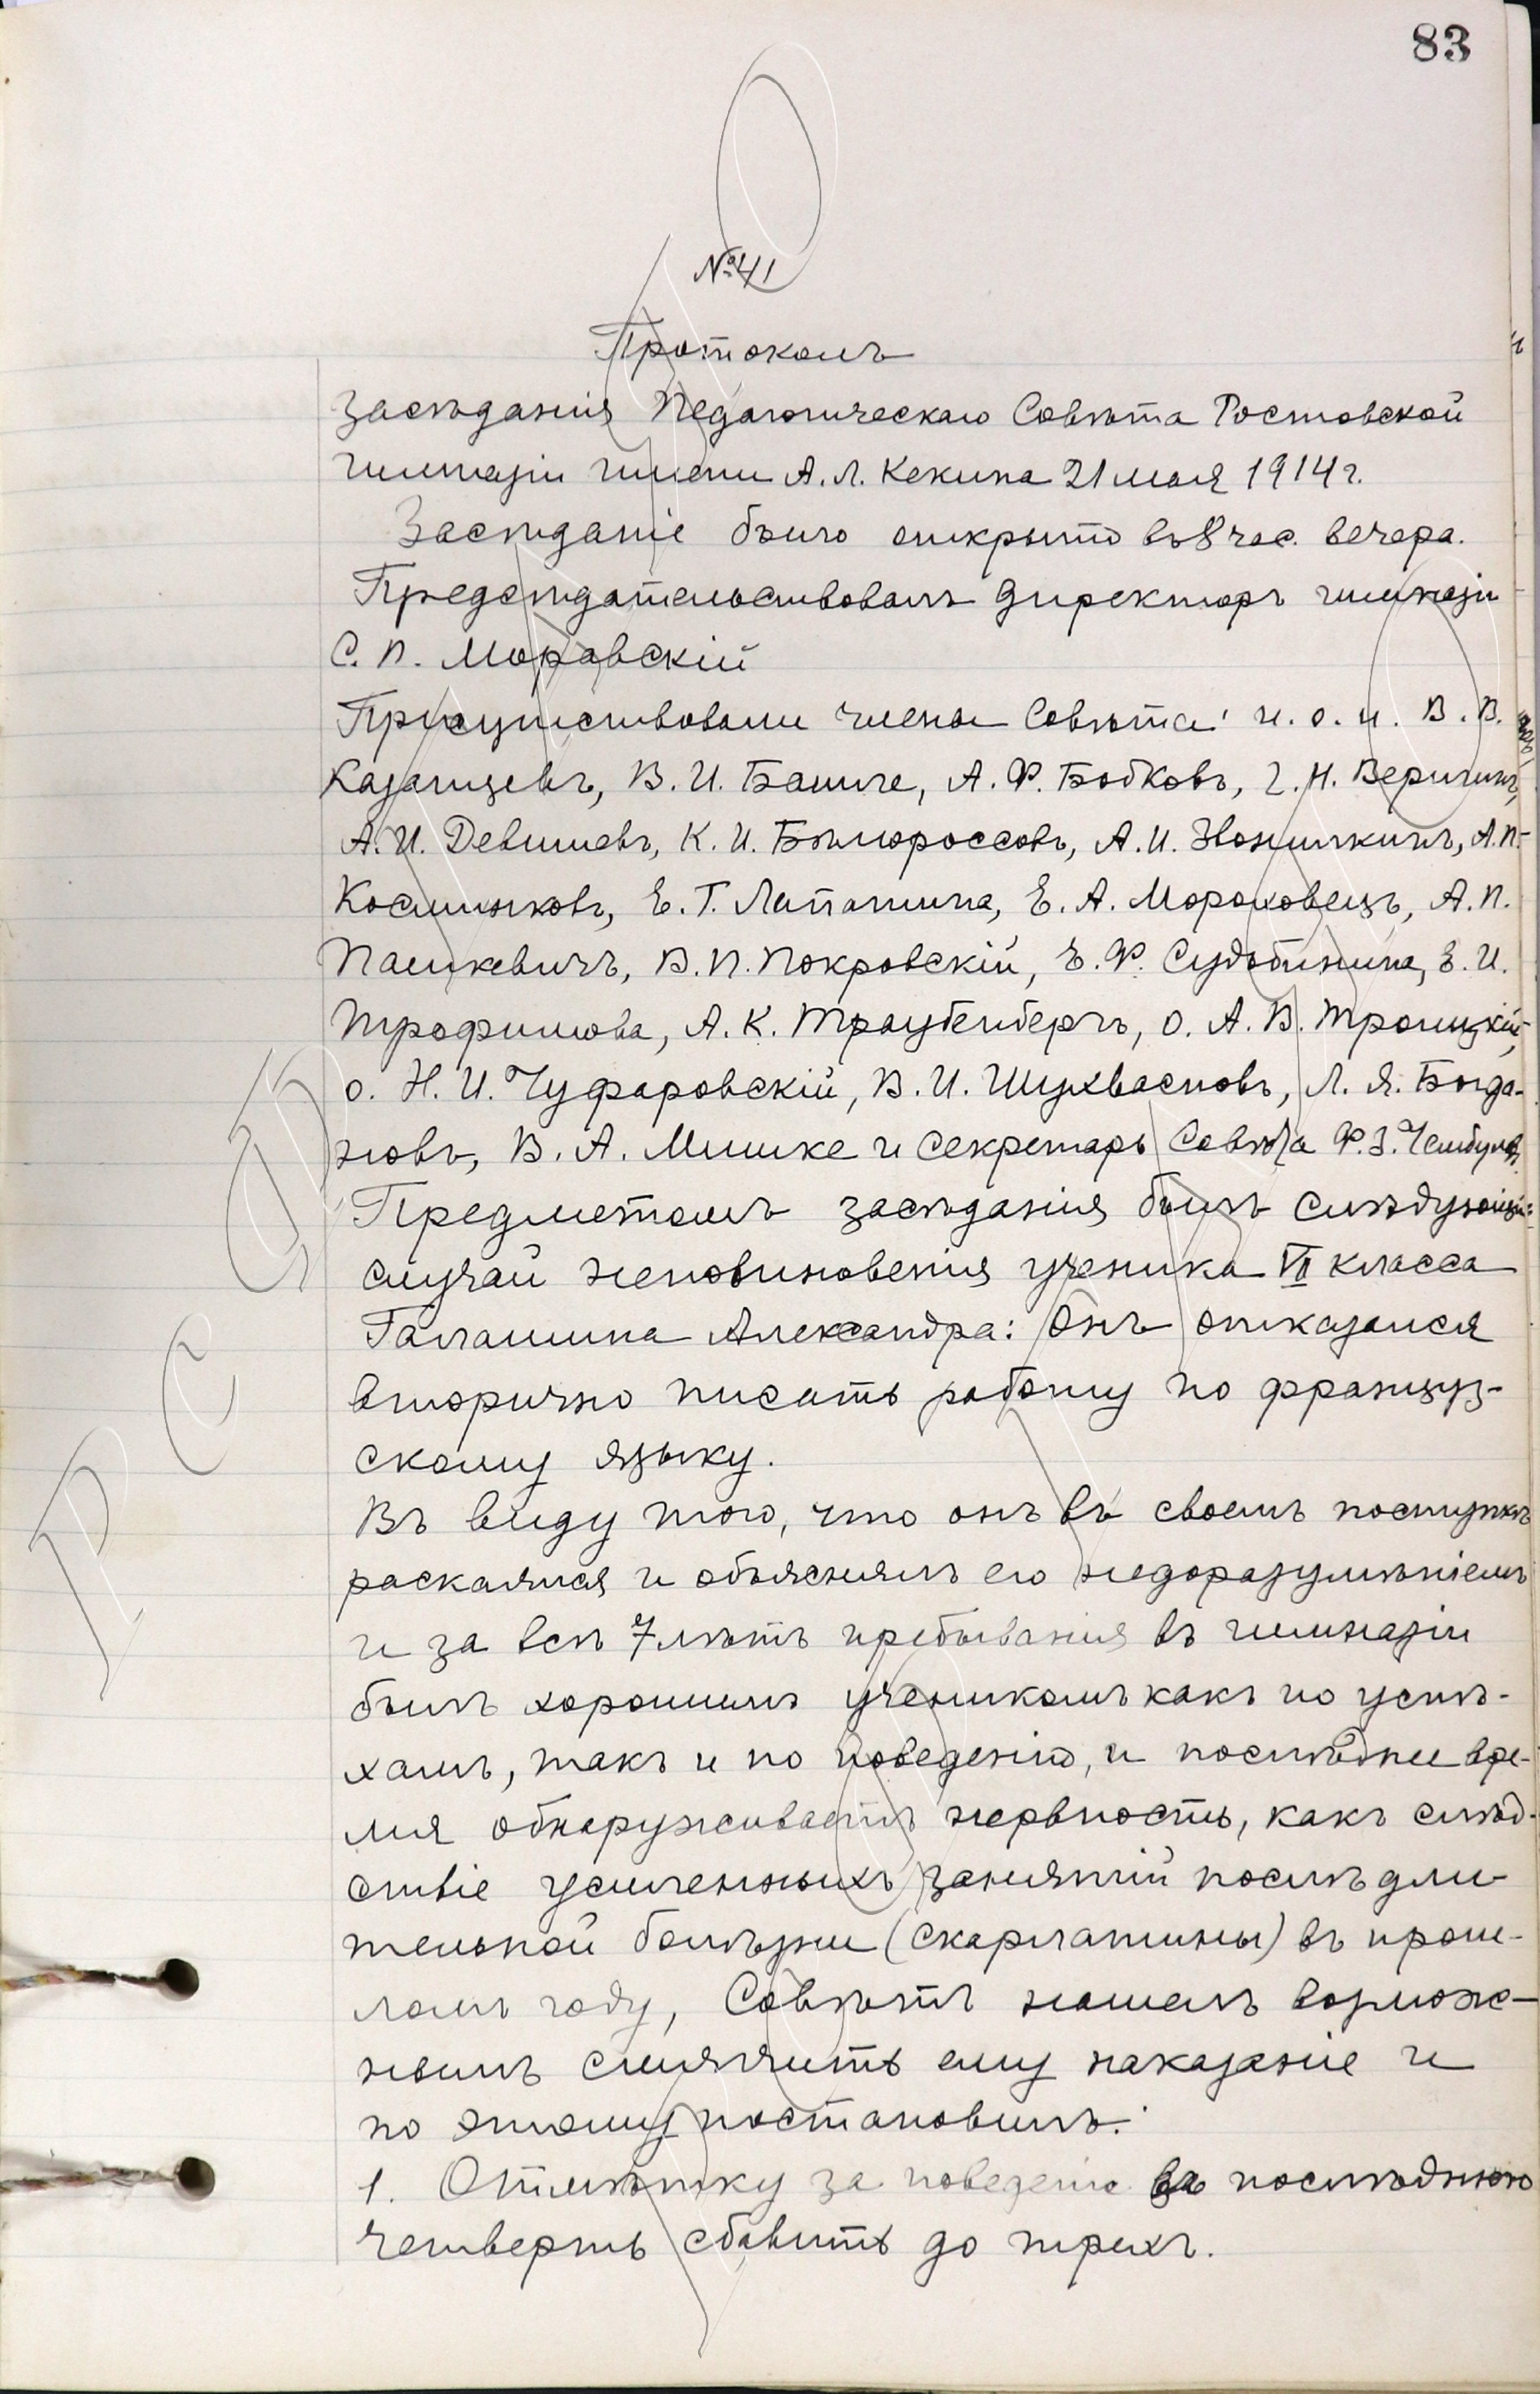 83
№41
Протоколъ
засѣданія Педагогическаго Совѣта Ростовской
гимназіи имени А.Л. Кекина 21 мая 1914 г.
Засѣданіе было открыто въ 8 час. вечера.
Предсѣдательствовалъ директоръ гимназіи
С. П. Моравскій
Присутствовали члены Совѣта: и. о. и. В. В.
Казанцевъ, В. И. Башле, А. Ф. Бобковъ, Г. Н. Веригинъ,
А. И. Девишевъ, К. И. Бѣлороссовъ, А. И. Звонилкинъ, А. П.
Космынковъ, Е. Г. Лапатина, Е. А. Мороховецъ, А. П.
Пашкевичъ, В. П. Покровскій, Е. Ф. Судьбинина, Е. И.
Трофимова, А. К. Траубенбергъ, о. А. В. Троицкій,
о. Н. И. Чуфаровскій, В. И. Шухвастовъ, Л. Я. Богда-
новъ, В. А. Мишке и секретарь Совѣта Ф. З.
Предметомъ засѣданія былъ слѣдующій
случай неповиновенія ученика VII класса
Галашина Александра: Онъ отказался
вторично писать работу по француз-
скому языку.
Въ виду того, что онъ въ своемъ поступкѣ
раскаялся и объяснялъ его недоразумѣніемъ
и за всѣ 7 лѣтъ пребыванія въ гимназіи
былъ хорошимъ ученикомъ какъ по успѣ-
хамъ, такъ и по поведенію, и послѣднее вре-
мя обнаруживаетъ нервность, какъ слѣд-
ствіе усиленныхъ занятій послѣ дли-
тельной болѣзни (скарлатины) въ прош-
ломъ году, Совѣтъ нашелъ возмож-
нымъ смягчить ему наказаніе и
по этому постановилъ:
1. Отмѣтку за поведеніе за послѣднюю
четверть сбавить до трехъ.